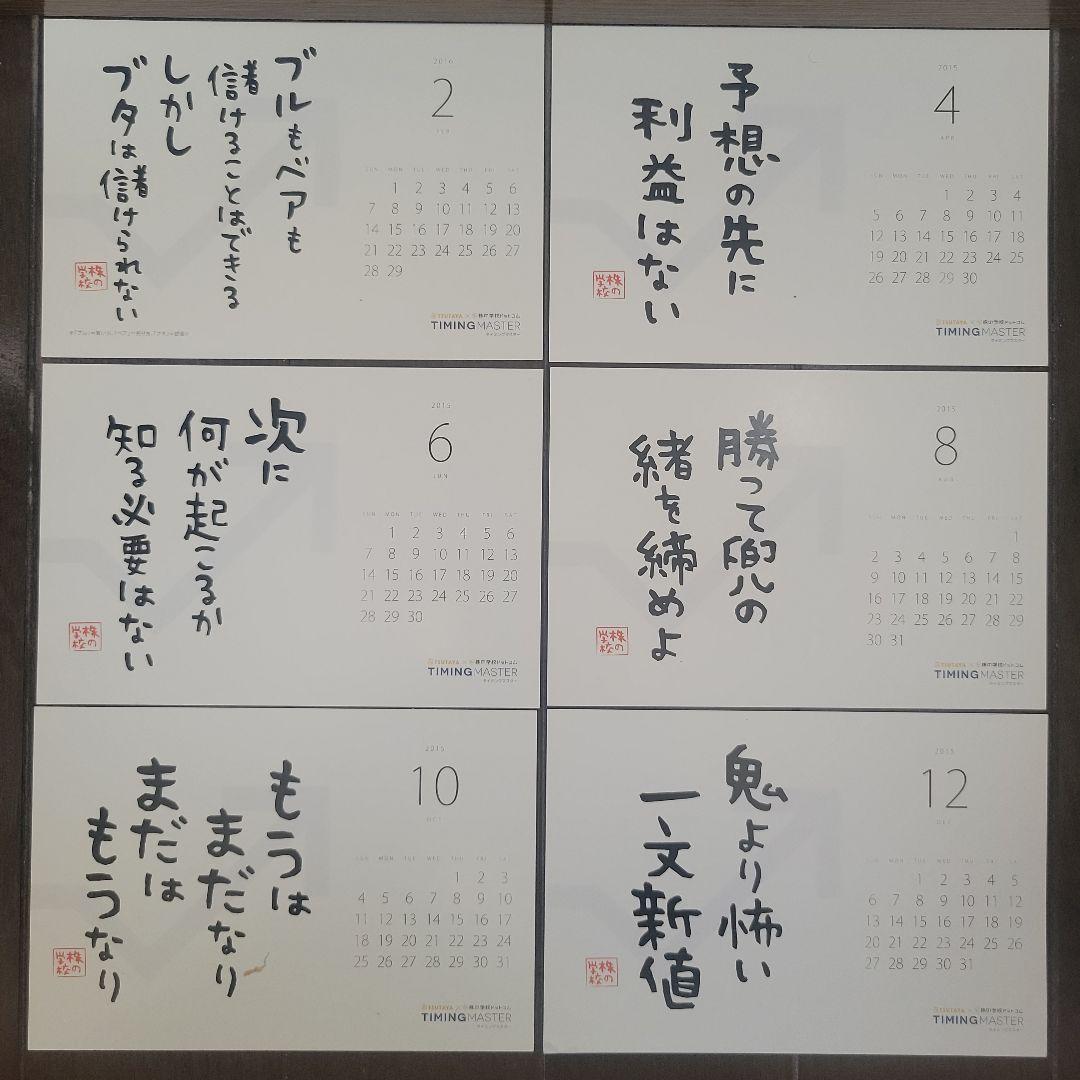 ブルもベアも
儲けることはできる
しかし
ブタは儲けられない
株の
学校
2016
2
FEB
SUN MON TUE WED THU FRI SAT
1 2 3 4 5 6
7 8 9 10 11 12 13
14 15 16 17 18 19 20
21 22 23 24 25 26 27
28 29
TSUTAYA × 株の学校ドットコム
TIMING MASTER
タイミングマスター
予想の先に
利益はない
株の
学校
2015
4
APR
SUN MON TUE WED THU FRI SAT
1 2 3 4
5 6 7 8 9 10 11
12 13 14 15 16 17 18
19 20 21 22 23 24 25
26 27 28 29 30
TSUTAYA × 株の学校ドットコム
TIMING MASTER
タイミングマスター
次に
何が起こるか
知る必要はない
株の
学校
2015
6
JUN
SUN MON TUE WED THU FRI SAT
1 2 3 4 5 6
7 8 9 10 11 12 13
14 15 16 17 18 19 20
21 22 23 24 25 26 27
28 29 30
TSUTAYA × 株の学校ドットコム
TIMING MASTER
タイミングマスター
勝って兜の
緒を締めよ
株の
学校
2015
8
AUG
SUN MON TUE WED THU FRI SAT
1
2 3 4 5 6 7 8
9 10 11 12 13 14 15
16 17 18 19 20 21 22
23 24 25 26 27 28 29
30 31
TSUTAYA × 株の学校ドットコム
TIMING MASTER
タイミングマスター
もうは
まだなり
まだは
もうなり
株の
学校
2015
10
OCT
SUN MON TUE WED THU FRI SAT
1 2 3
4 5 6 7 8 9 10
11 12 13 14 15 16 17
18 19 20 21 22 23 24
25 26 27 28 29 30 31
TSUTAYA × 株の学校ドットコム
TIMING MASTER
タイミングマスター
鬼より怖い
一、文新値
株の
学校
2015
12
DEC
SUN MON TUE WED THU FRI SAT
1 2 3 4 5
6 7 8 9 10 11 12
13 14 15 16 17 18 19
20 21 22 23 24 25 26
27 28 29 30 31
TSUTAYA × 株の学校ドットコム
TIMING MASTER
タイミングマスター